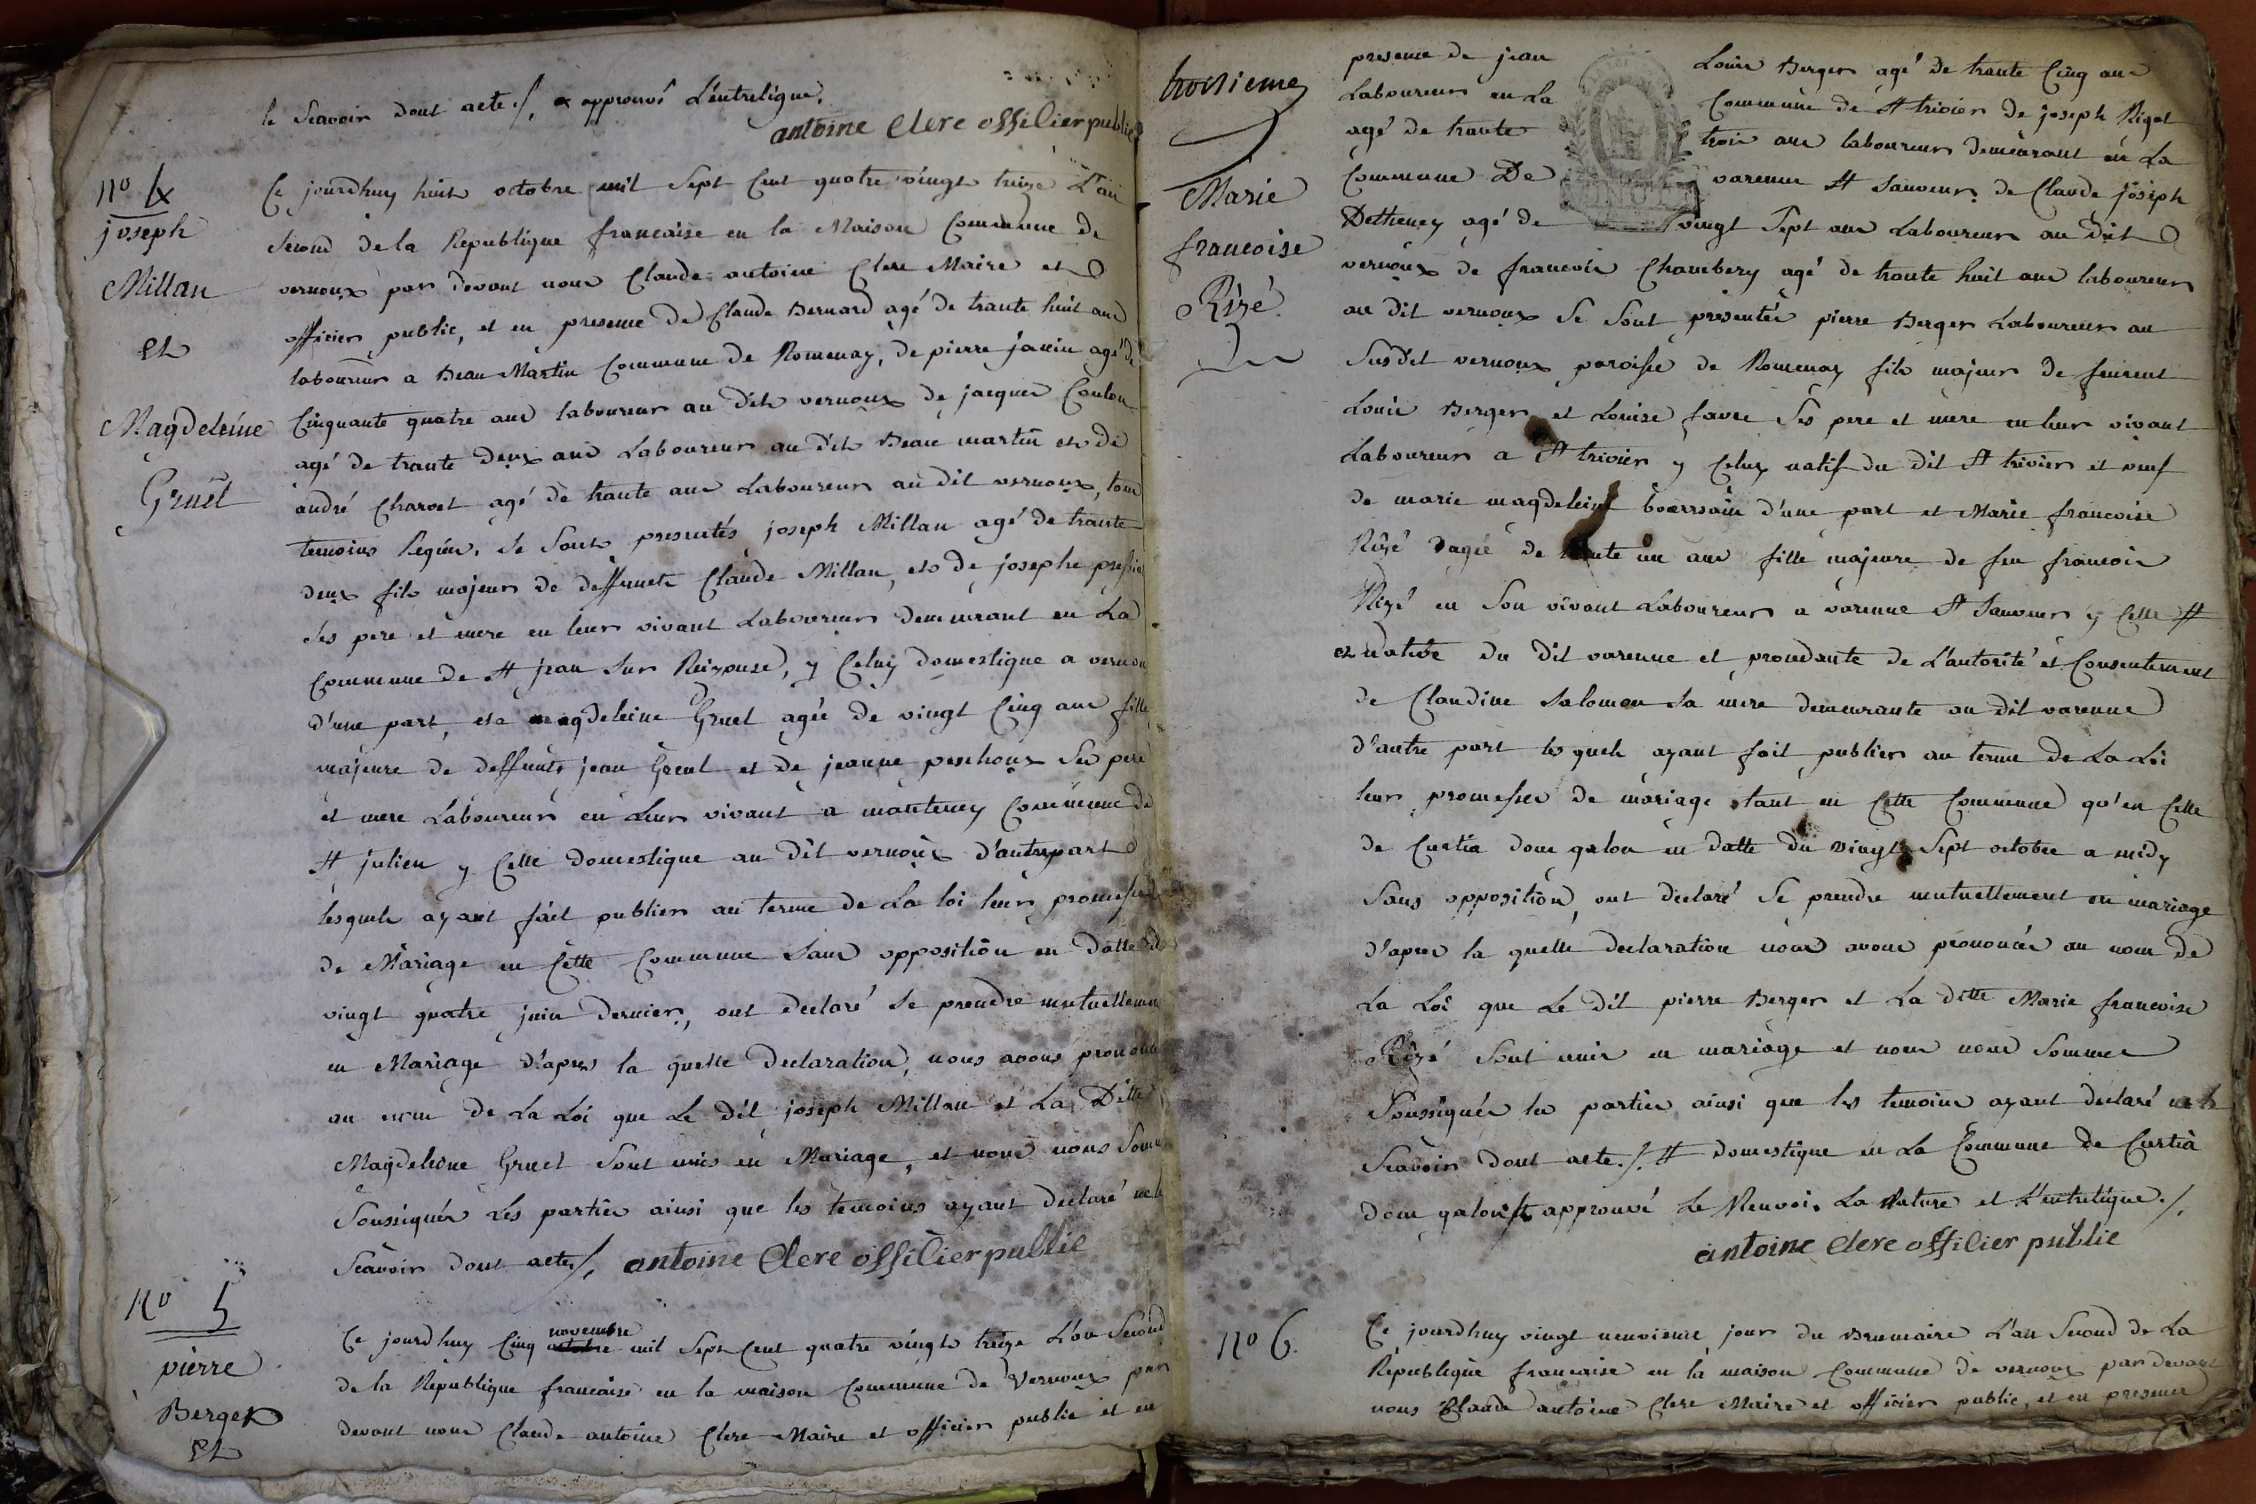 le Scavoir dont acte ./. approuvé L'entreligne.
antoine Clerc offilier public
N° 4
joseph
Millan
et
Magdeleine
Gruet
Ce jourdhuy huit octobre mil Sept Cent quatre vingt treize L'an
Second de la Republique francaise en la Maison Commune de
vernoux par devant nous Claude antoine Clerc Maire et
officier public, et en presence de Claude Bernard agé de trante huit ans
laboureur a Beau Martin Commune de Romenay, de pierre janin agé de
Cinquante quatre ans laboureur au dit vernoux de jacques Coulon
agé de trante deux ans Laboureur au dit Beau martin et de
andré Charvet agé de trante ans Laboureur au dit vernoux, tous
temoins Requis, Se Sont presentés joseph Millan agé de trante
deux fils majeur de deffuncts Claude Millan, et de josephe
Ses pere et mere en leur vivant Laboureurs demeurant en La
Commune de St jean Sur Reizouse, y Celuy domestique a vernoux
d'une part, et magdeleine Gruet agée de vingt Cinq ans fille
majeure de deffunts jean Gruet et de jeanne ponthoux Ses pere
et mere Laboureurs en Leur vivant a manteney Commune de
St julien y Celle domestique au dit vernoux d'autre part
lesquels ayant fait publier au terme de La loi leur promesse
de Mariage en Cette Commune Sans opposition en datte du
vingt quatre juin dernier, ont declaré Se prendre mutuellement
en Mariage d'apres la quelle declaration, nous avons prononcé
au nom de La Loi que Le dit joseph Millan et La Ditte
Magdeleine Gruet Sont unis en Mariage, et nous nous Sommes
Soussignés Les parties ainsi que les temoins ayant declaré ne le
Scavoir dont acte ./. antoine Clerc offilier public
N° 5
pierre
Berger
et
Ce jourdhuy Cinq octobre novembre mil Sept Cent quatre vingt treize L'an Second
de la Republique francaise en la maison Commune de Vernoux par
devant nous Claude antoine Clerc Maire et officier public et en
troisieme
Marie
francoise
Rizé
presence de jean Louis Berger agé de trante Cinq ans
Laboureur en La Commune de St trivier de joseph Rigot
agé de trante trois ans laboureur demeurant en La
Commune De varenne St Sauveur de Claude joseph
Detheney agé de vingt Sept ans Laboureur au dit
vernoux de francois Chambery agé de trante huit ans laboureur
au dit vernoux Se Sont presentés pierre Berger Laboureur au
Susdit vernoux paroisse de Romenay fils majeur de feurent
Louis Berger et Louise favre Ses pere et mere en leur vivant
Laboureurs a St trivier y Celuy natif du dit St trivier et veuf
de marie magdeleine d'une part et Marie francoise
Rizé agée de trante un ans fille majeure de feu francois
Rizé en Son vivant Laboureur a varenne St Sauveur y Celle #
et native du dit varenne et procedante de L'autorité et Consentement
de Claudine Salomon Sa mere demeurante au dit varenne
d'autre part les quels ayant fait publier au terme de La Loi
leur promesses de mariage tant en Cette Commune qu'en Celle
de Curtia dom galon en datte du vingt Sept octobre a midy
Sans opposition, ont declaré Se prendre mutuellement en mariage
d'apres la quelle declaration nous avons prononcés au nom de
La Loi que Le dit pierre Berger et La ditte Marie francoise
Rizé Sont unis en mariage et nous nous Sommes
Soussignés les parties ainsi que les temoins ayant declaré ne le
Scavoir dont acte ./. # domestique en La Commune de Curtia
dom galon # approuvé Le Renvoi, La Rature et L'entreligne ./.
antoine Clerc offilier public
N° 6.
Ce jourdhuy vingt neuvieme jour du Brumaire L'an Second de La
Republique francaise en la maison Commune de vernoux par devant
nous Claude antoine Clerc Maire et officier public, et en presence